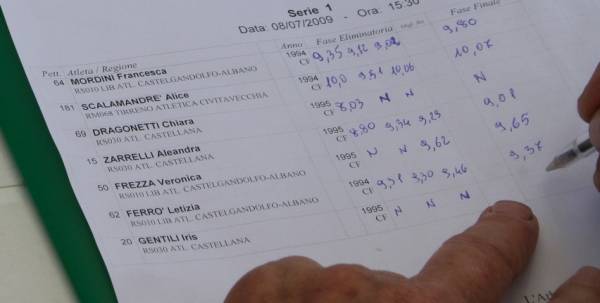 Serie 1
Data: 08/07/2009 - Ora: 15:30
Pett. Atleta / Regione Anno Fase Eliminatoria Fase Finale
64 MORDINI Francesca 1994 9,35 9,12 9,02 9,80
RS010 LIB ATL. CASTELGANDOLFO-ALBANO CF
181 SCALAMANDRE' Alice 1994 10,0 9,51 10,06 10,07
RM068 TIRRENO ATLETICA CIVITAVECCHIA CF
69 DRAGONETTI Chiara 1995 8,03 N N N
RS030 ATL. CASTELLANA CF
15 ZARRELLI Aleandra 1995 8,80 9,34 9,25 9,01
RS030 ATL. CASTELLANA CF
50 FREZZA Veronica 1995 N N 9,62 9,65
RS010 LIB ATL. CASTELGANDOLFO-ALBANO CF
62 FERRO' Letizia 1994 9,31 9,30 9,46 9,37
RS010 LIB ATL. CASTELGANDOLFO-ALBANO CF
20 GENTILI Iris 1995 N N N
RS030 ATL. CASTELLANA CF